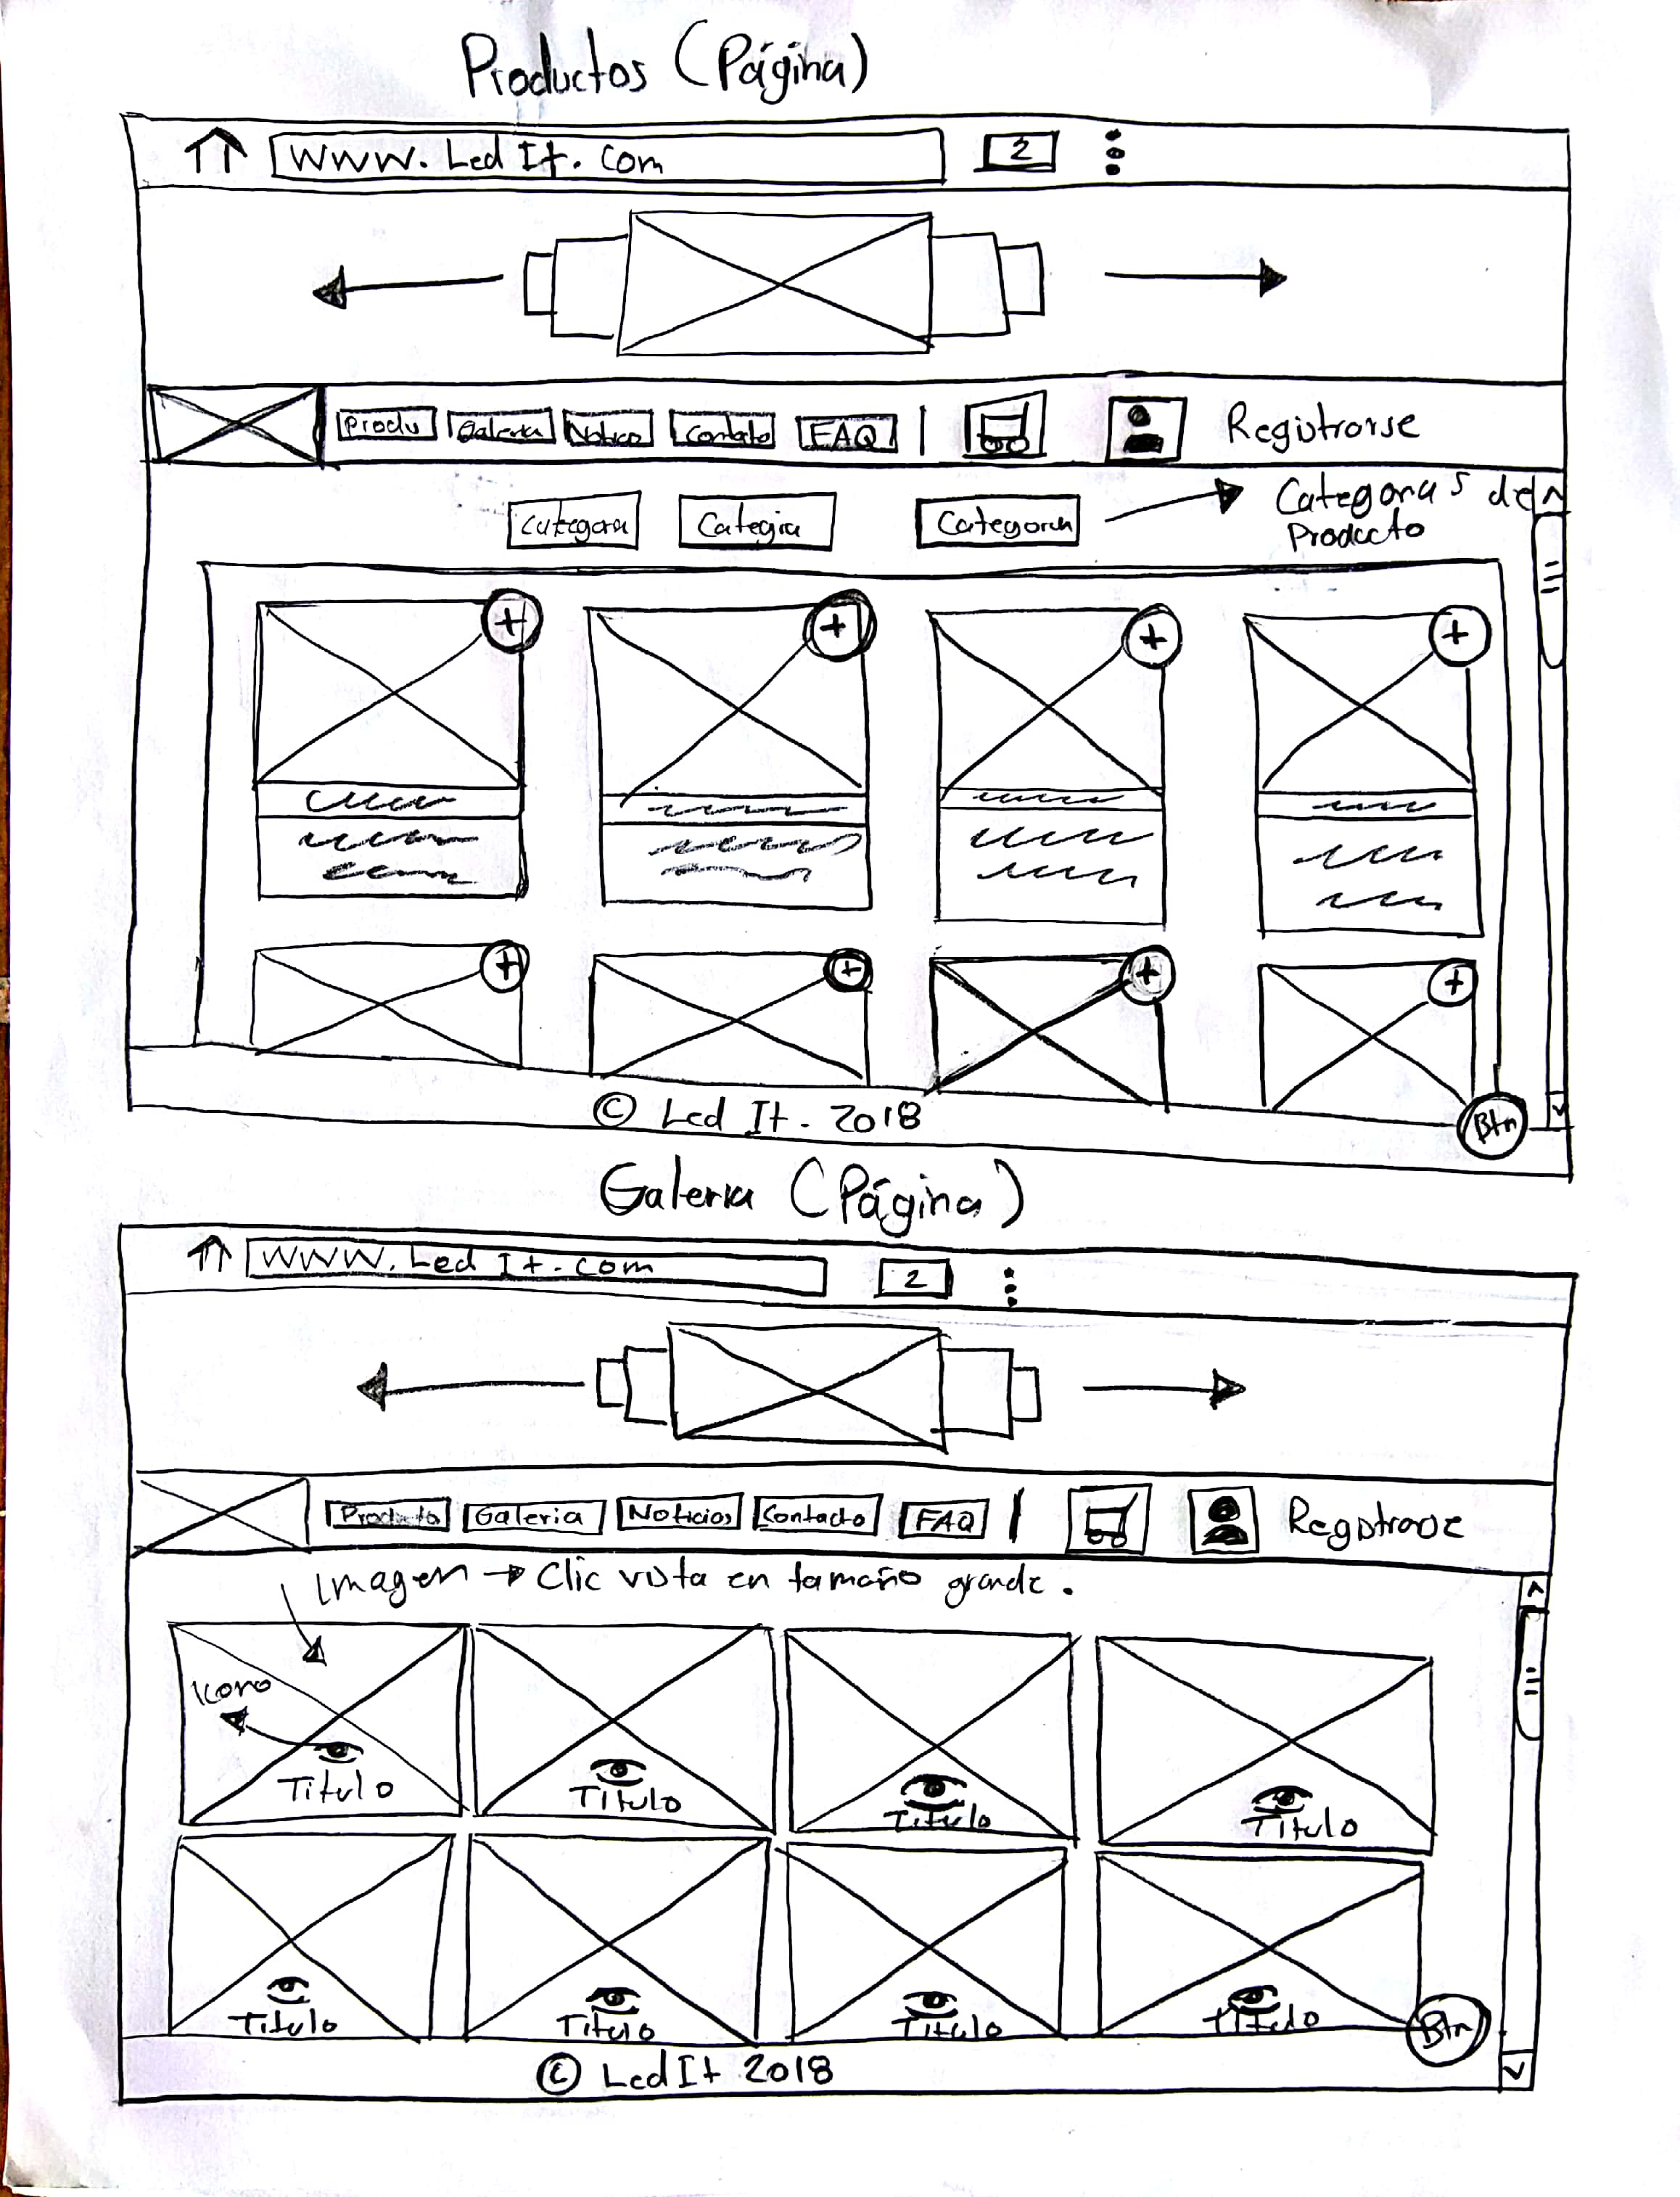 Productos (Página)
www. Led It. com
2
Produ Galeria Notica Contato FAQ | Registrarse
Categora Categia Categoria Categorias de
Producto
+ + + +
+ + + +
© Led It. 2018 Btn
Galeria (Página)
WWW. Led It. com
2
Producto Galeria Noticias Contacto FAQ | Registrarse
Imagen → Clic vista en tamaño grande.
Icono
Titulo Titulo Titulo Titulo
Titulo Titulo Titulo Titulo
Btn
© Led It 2018